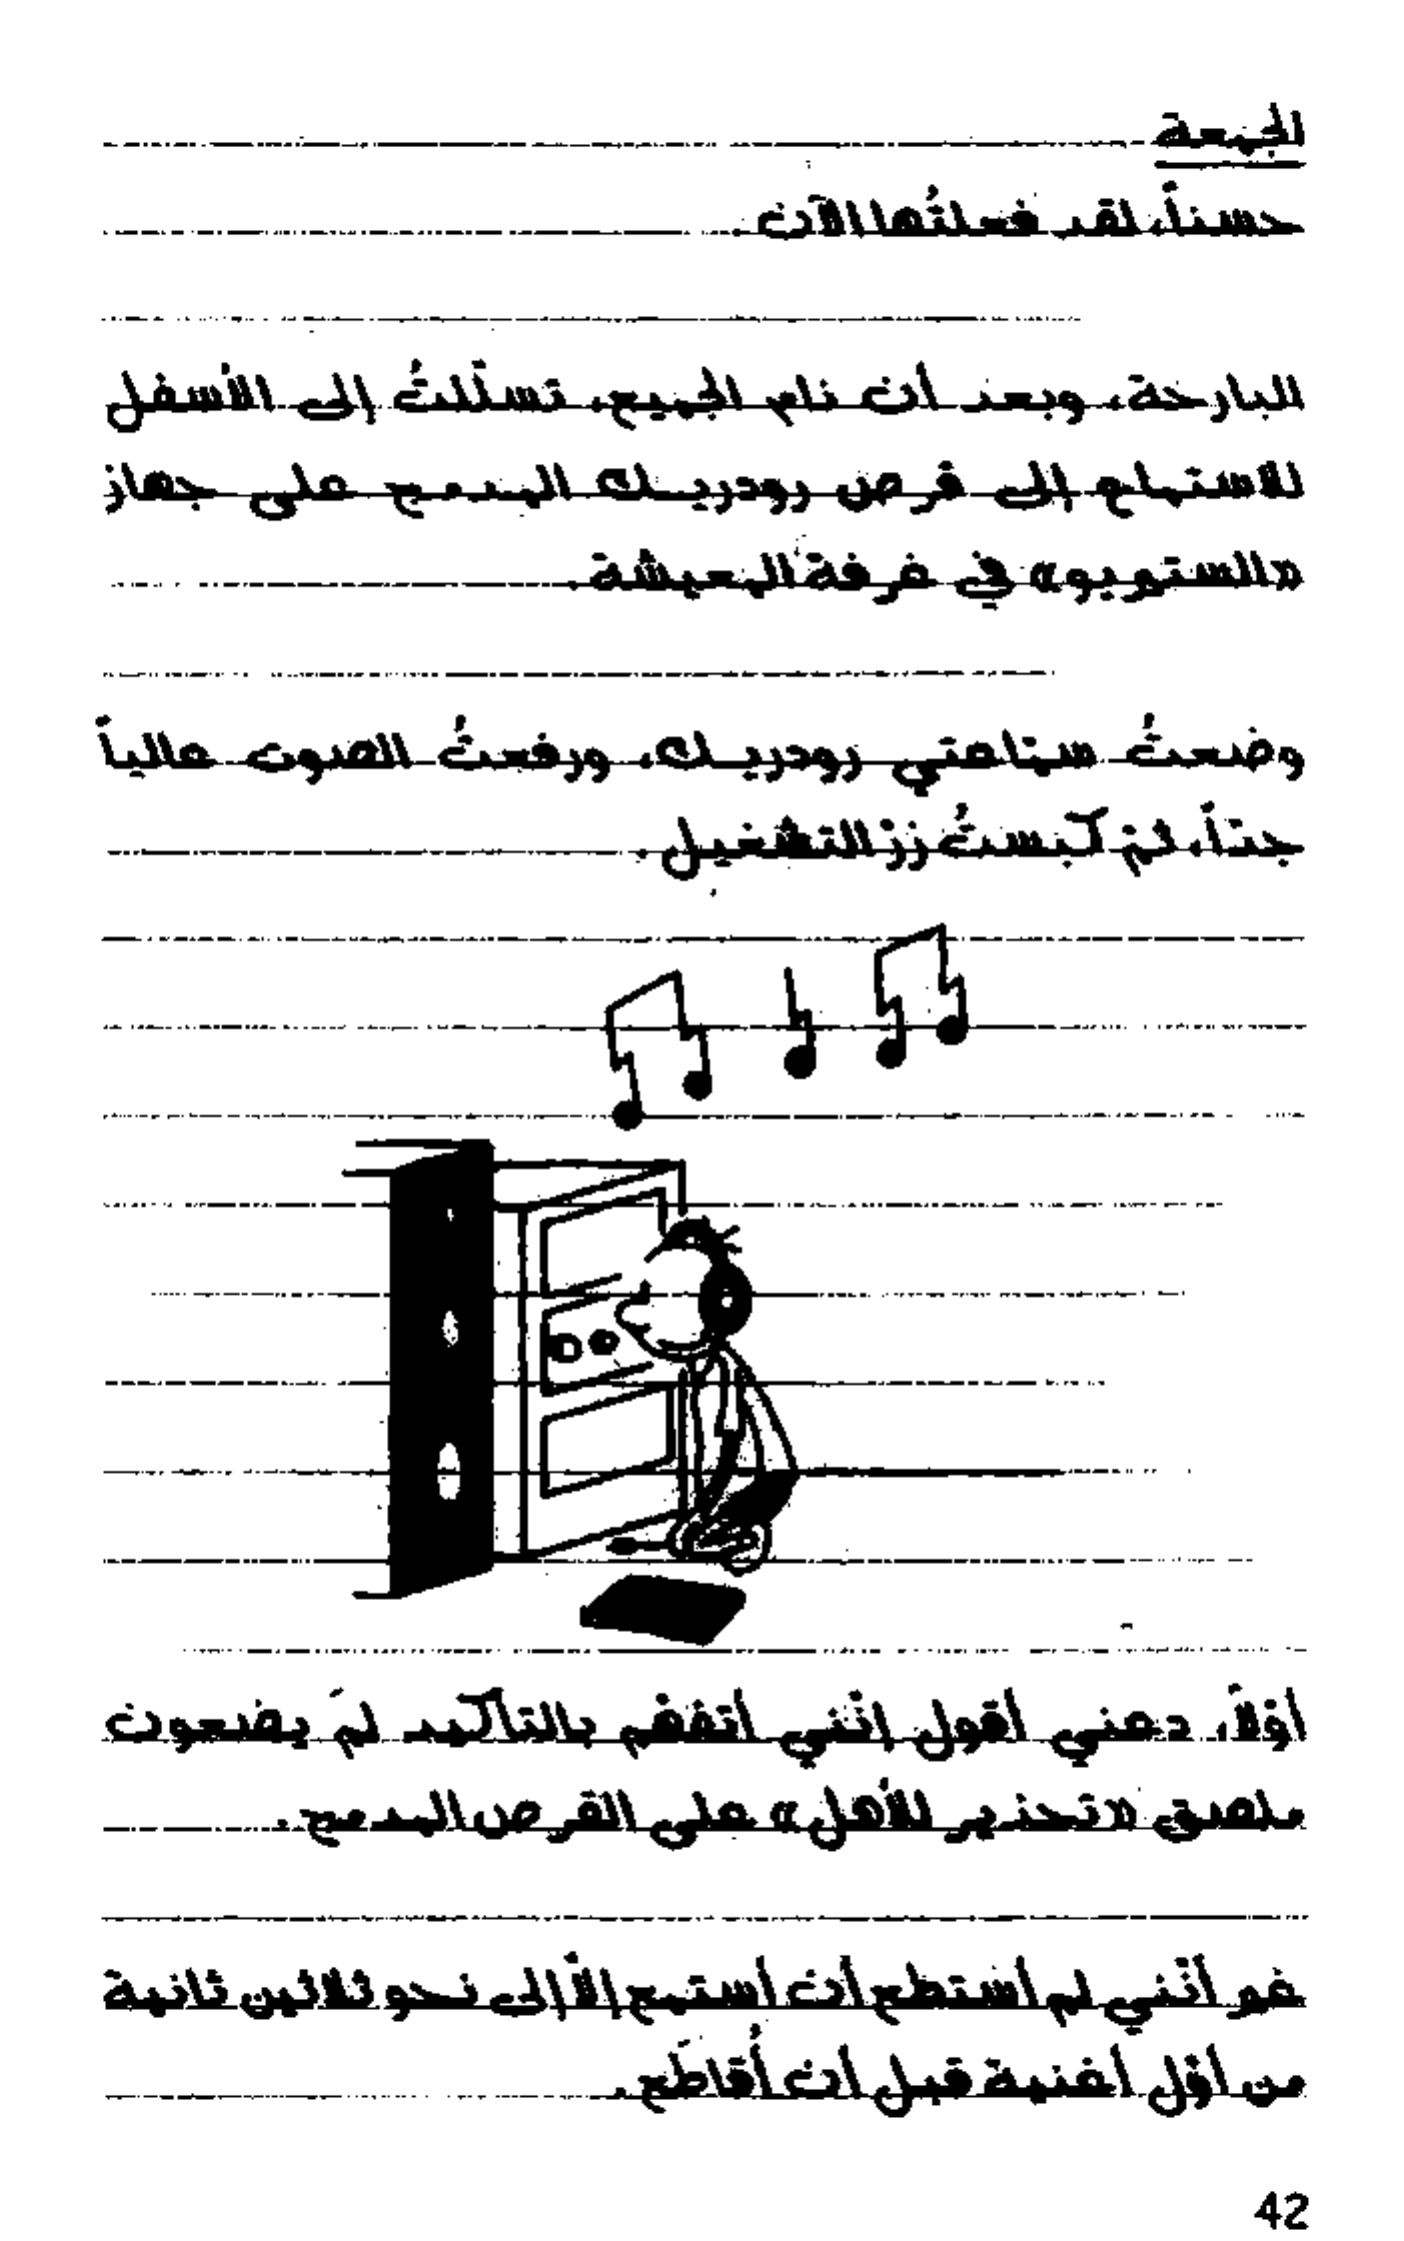 الجمعة
حسناً، لقد فعلتُها الآن.
البارحة، وبعد أن نام الجميع، تسلّلتُ إلى الأسفل
للاستماع إلى قرص رودريك المدمج على جهاز
«الستريو» في غرفة المعيشة.
وضعتُ سمّاعتي رودريك، ورفعتُ الصوت عالياً
جدّاً، ثمّ كبستُ زرّ التشغيل.
أوّلاً، دعني أقول إنّني أتفهّم بالتأكيد لمَ يضعون
ملصق «تحذير للأهل» على القرص المدمج.
غير أنّني لم أستطع أن أستمع إلاّ إلى نحو ثلاثين ثانية
من أوّل أغنية قبل أن أُقاطَع.
42